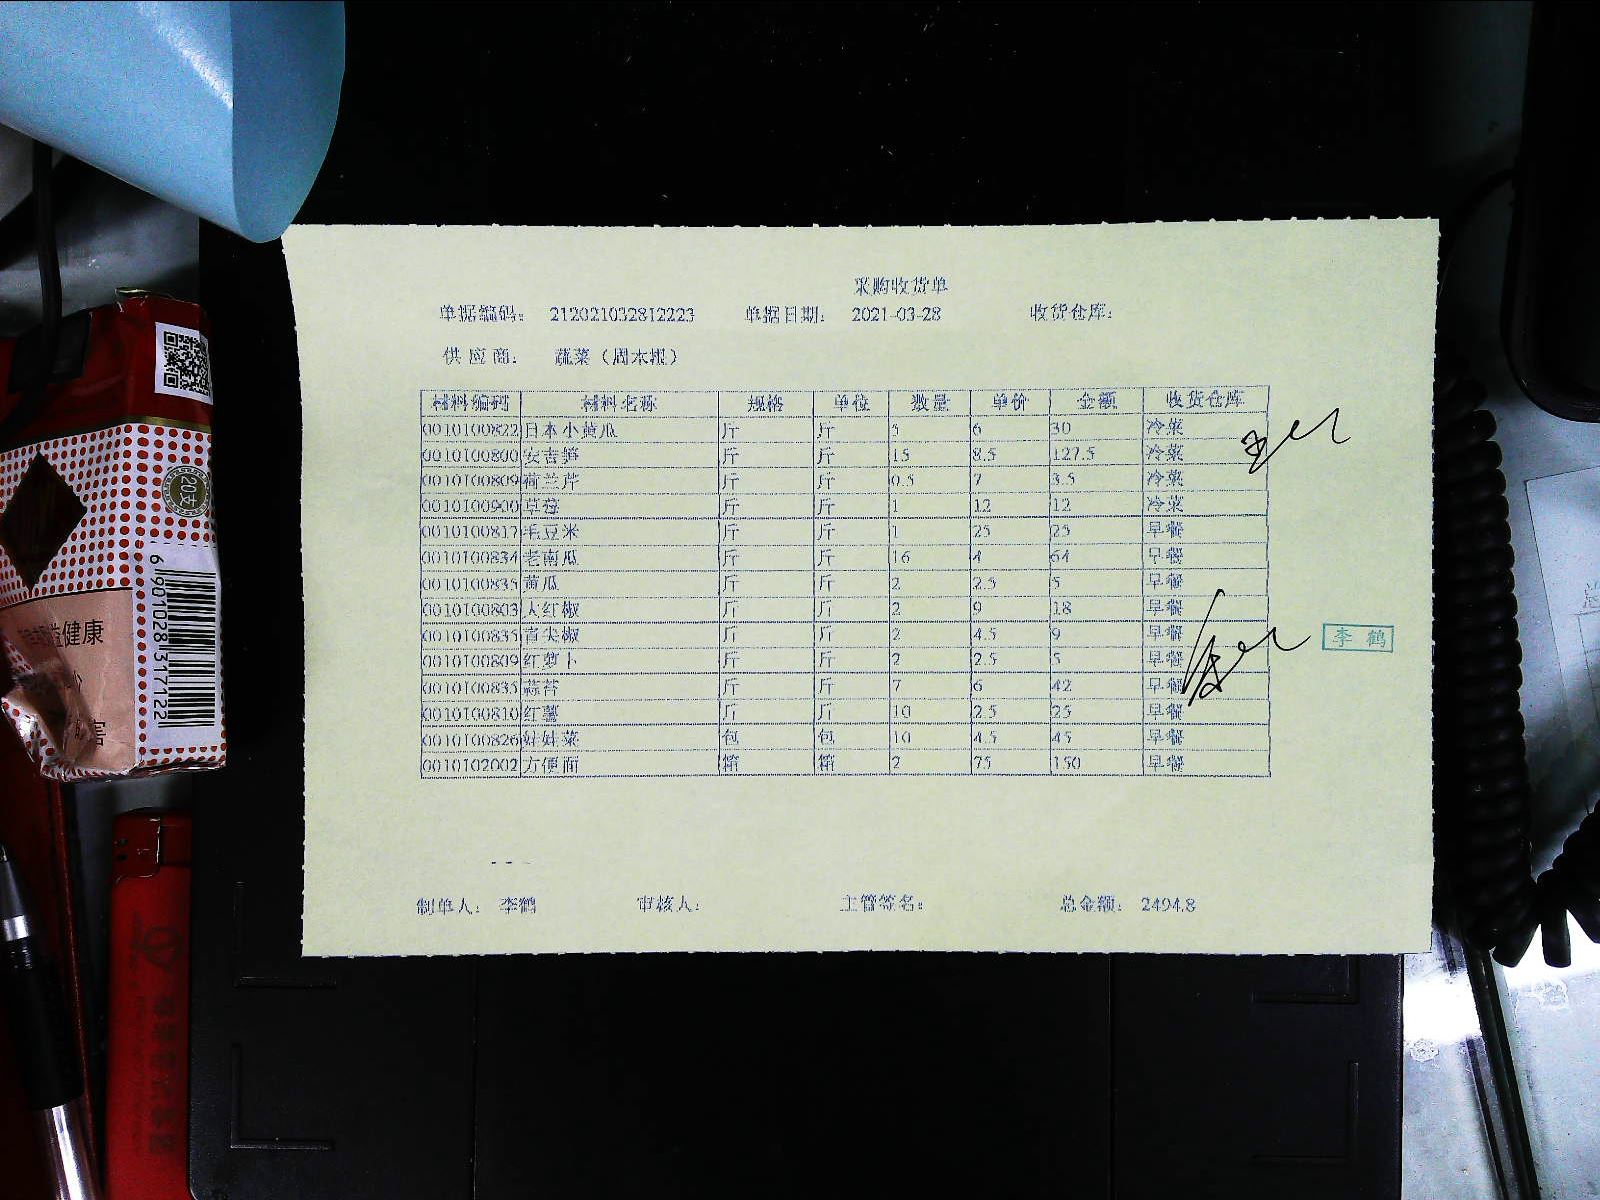 采购收货单
单据编码: 212021032812223 单据日期: 2021-03-28 收货仓库:
供应商: 蔬菜（周木根）
材料编码 材料名称 规格 单位 数量 单价 金额 收货仓库
0010100822 日本小黄瓜 斤 斤 5 6 30 冷菜
0010100800 安吉笋 斤 斤 15 8.5 127.5 冷菜
0010100809 荷兰芹 斤 斤 0.5 7 3.5 冷菜
0010100900 草莓 斤 斤 1 12 12 冷菜
0010100817 毛豆米 斤 斤 1 25 25 早餐
0010100834 老南瓜 斤 斤 16 4 64 早餐
0010100835 黄瓜 斤 斤 2 2.5 5 早餐
0010100803 大红椒 斤 斤 2 9 18 早餐
0010100835 青尖椒 斤 斤 2 4.5 9 早餐
0010100809 红萝卜 斤 斤 2 2.5 5 早餐
0010100835 蒜苔 斤 斤 7 6 42 早餐
0010100810 红薯 斤 斤 10 2.5 25 早餐
0010100826 娃娃菜 包 包 10 4.5 45 早餐
0010102002 方便面 箱 箱 2 75 150 早餐
李鹤
制单人: 李鹤 审核人: 主管签名: 总金额: 2494.8
20支
益健康
害
6 901028 317122